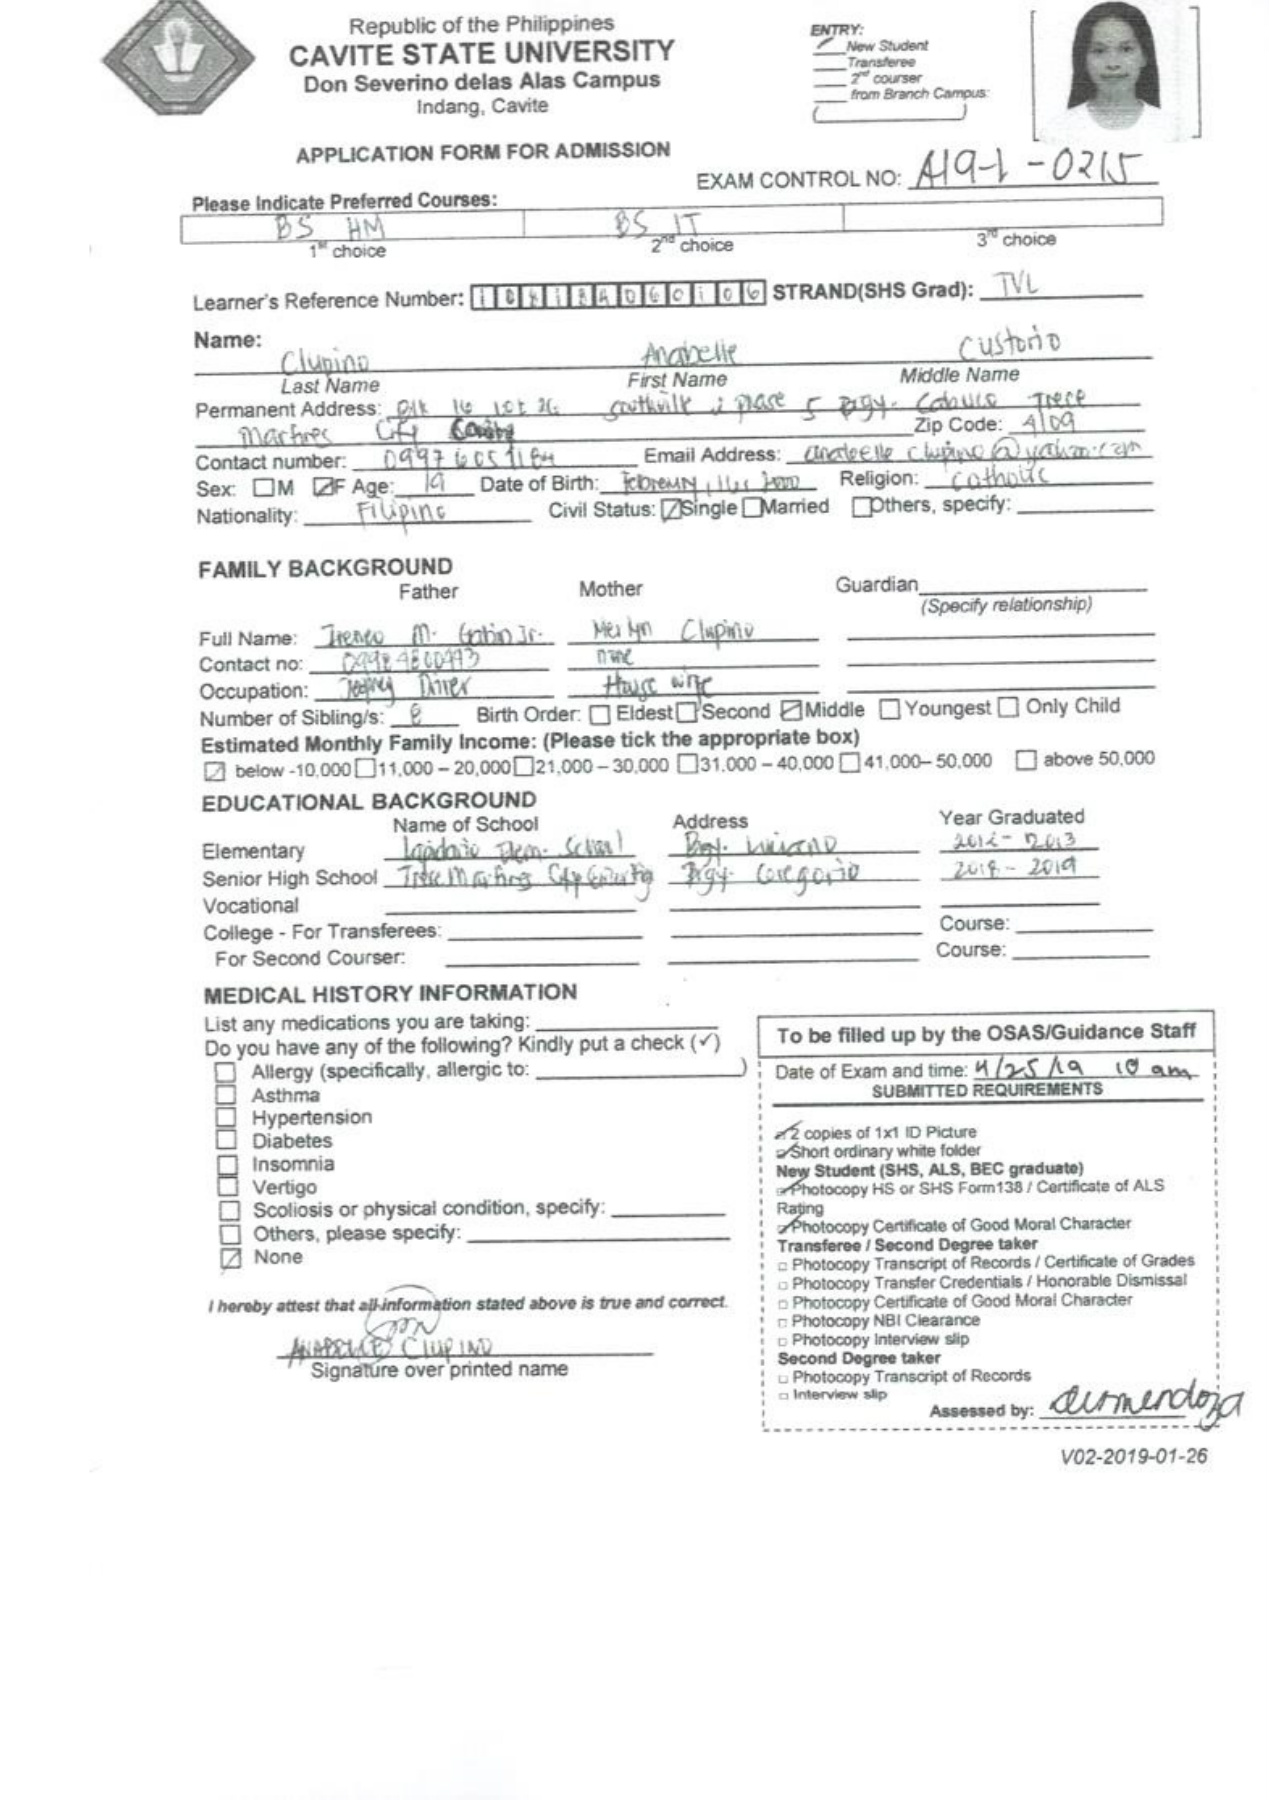 Republic of the Philippines
CAVITE STATE UNIVERSITY
Don Severino delas Alas Campus
Indang, Cavite
ENTRY:
New Student
Transferee
2nd courser
from Branch Campus:
APPLICATION FORM FOR ADMISSION
EXAM CONTROL NO: A19-1-0215
Please Indicate Preferred Courses:
BS HM BS IT
1st choice 2nd choice 3rd choice
Learner's Reference Number: STRAND(SHS Grad): TVL
Name:
Clupino Anabelle Custorio
Last Name First Name Middle Name
Permanent Address: Blk 16 Lot 26 Southville 2 phase 5 Brgy. Trece
Martires City Cavite Zip Code: 4109
Contact number: Email Address: anabelle clupino@yahoo.com
Sex: M F Age: 19 Date of Birth: Religion: Catholic
Nationality: Filipino Civil Status: Single Married Others, specify:
FAMILY BACKGROUND
Father Mother Guardian
(Specify relationship)
Full Name: M. Jr. Clupino
Contact no: none
Occupation: Driver House wife
Number of Sibling/s: Birth Order: Eldest Second Middle Youngest Only Child
Estimated Monthly Family Income: (Please tick the appropriate box)
below -10,000 11,000 – 20,000 21,000 – 30,000 31.000 – 40,000 41,000– 50,000 above 50,000
EDUCATIONAL BACKGROUND
Name of School Address Year Graduated
Elementary Lapidario Elem. School Brgy. Luciano 2012-2013
Senior High School Trece Martires City Brgy. Gregorio 2018-2019
Vocational
College - For Transferees: Course:
For Second Courser: Course:
MEDICAL HISTORY INFORMATION
List any medications you are taking:
Do you have any of the following? Kindly put a check (✓)
Allergy (specifically, allergic to: )
Asthma
Hypertension
Diabetes
Insomnia
Vertigo
Scoliosis or physical condition, specify:
Others, please specify:
None
I hereby attest that all information stated above is true and correct.
ANABELLE CLUPINO
Signature over printed name
To be filled up by the OSAS/Guidance Staff
Date of Exam and time: 4/25/19 10 am
SUBMITTED REQUIREMENTS
2 copies of 1x1 ID Picture
Short ordinary white folder
New Student (SHS, ALS, BEC graduate)
Photocopy HS or SHS Form138 / Certificate of ALS
Rating
Photocopy Certificate of Good Moral Character
Transferee / Second Degree taker
Photocopy Transcript of Records / Certificate of Grades
Photocopy Transfer Credentials / Honorable Dismissal
Photocopy Certificate of Good Moral Character
Photocopy NBI Clearance
Photocopy Interview slip
Second Degree taker
Photocopy Transcript of Records
Interview slip
Assessed by:
V02-2019-01-26